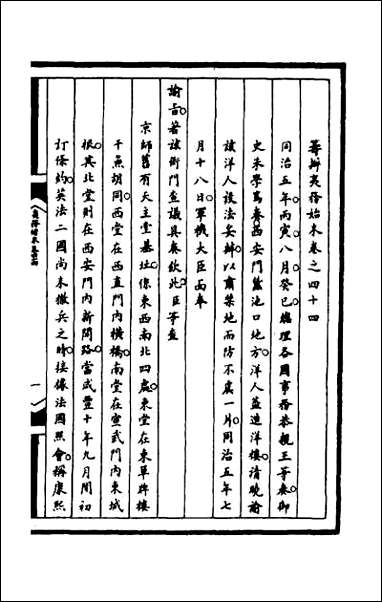 籌辦夷務始末卷之四十四
同治五年丙寅八月癸巳。總理各國事務恭親王等奏。御
史朱學篤奏西安門蠶池口地方。洋人蓋造洋樓。請曉諭
該洋人設法妥辦。以肅禁地而防不虞一片。同治五年七
月十八日。軍機大臣面奉
諭旨。著該衙門查議具奏。欽此。臣等查
京師舊有天主堂基址。係東西南北四處。東堂在東單牌樓
干魚胡同。西堂在西直門內橫橋。南堂在宣武門內東城
根。其北堂則在西安門內新開路。當咸豐十年九月間。初
訂條約。英法二國尚未撤兵之時。接據法國照會。稱康熙
一